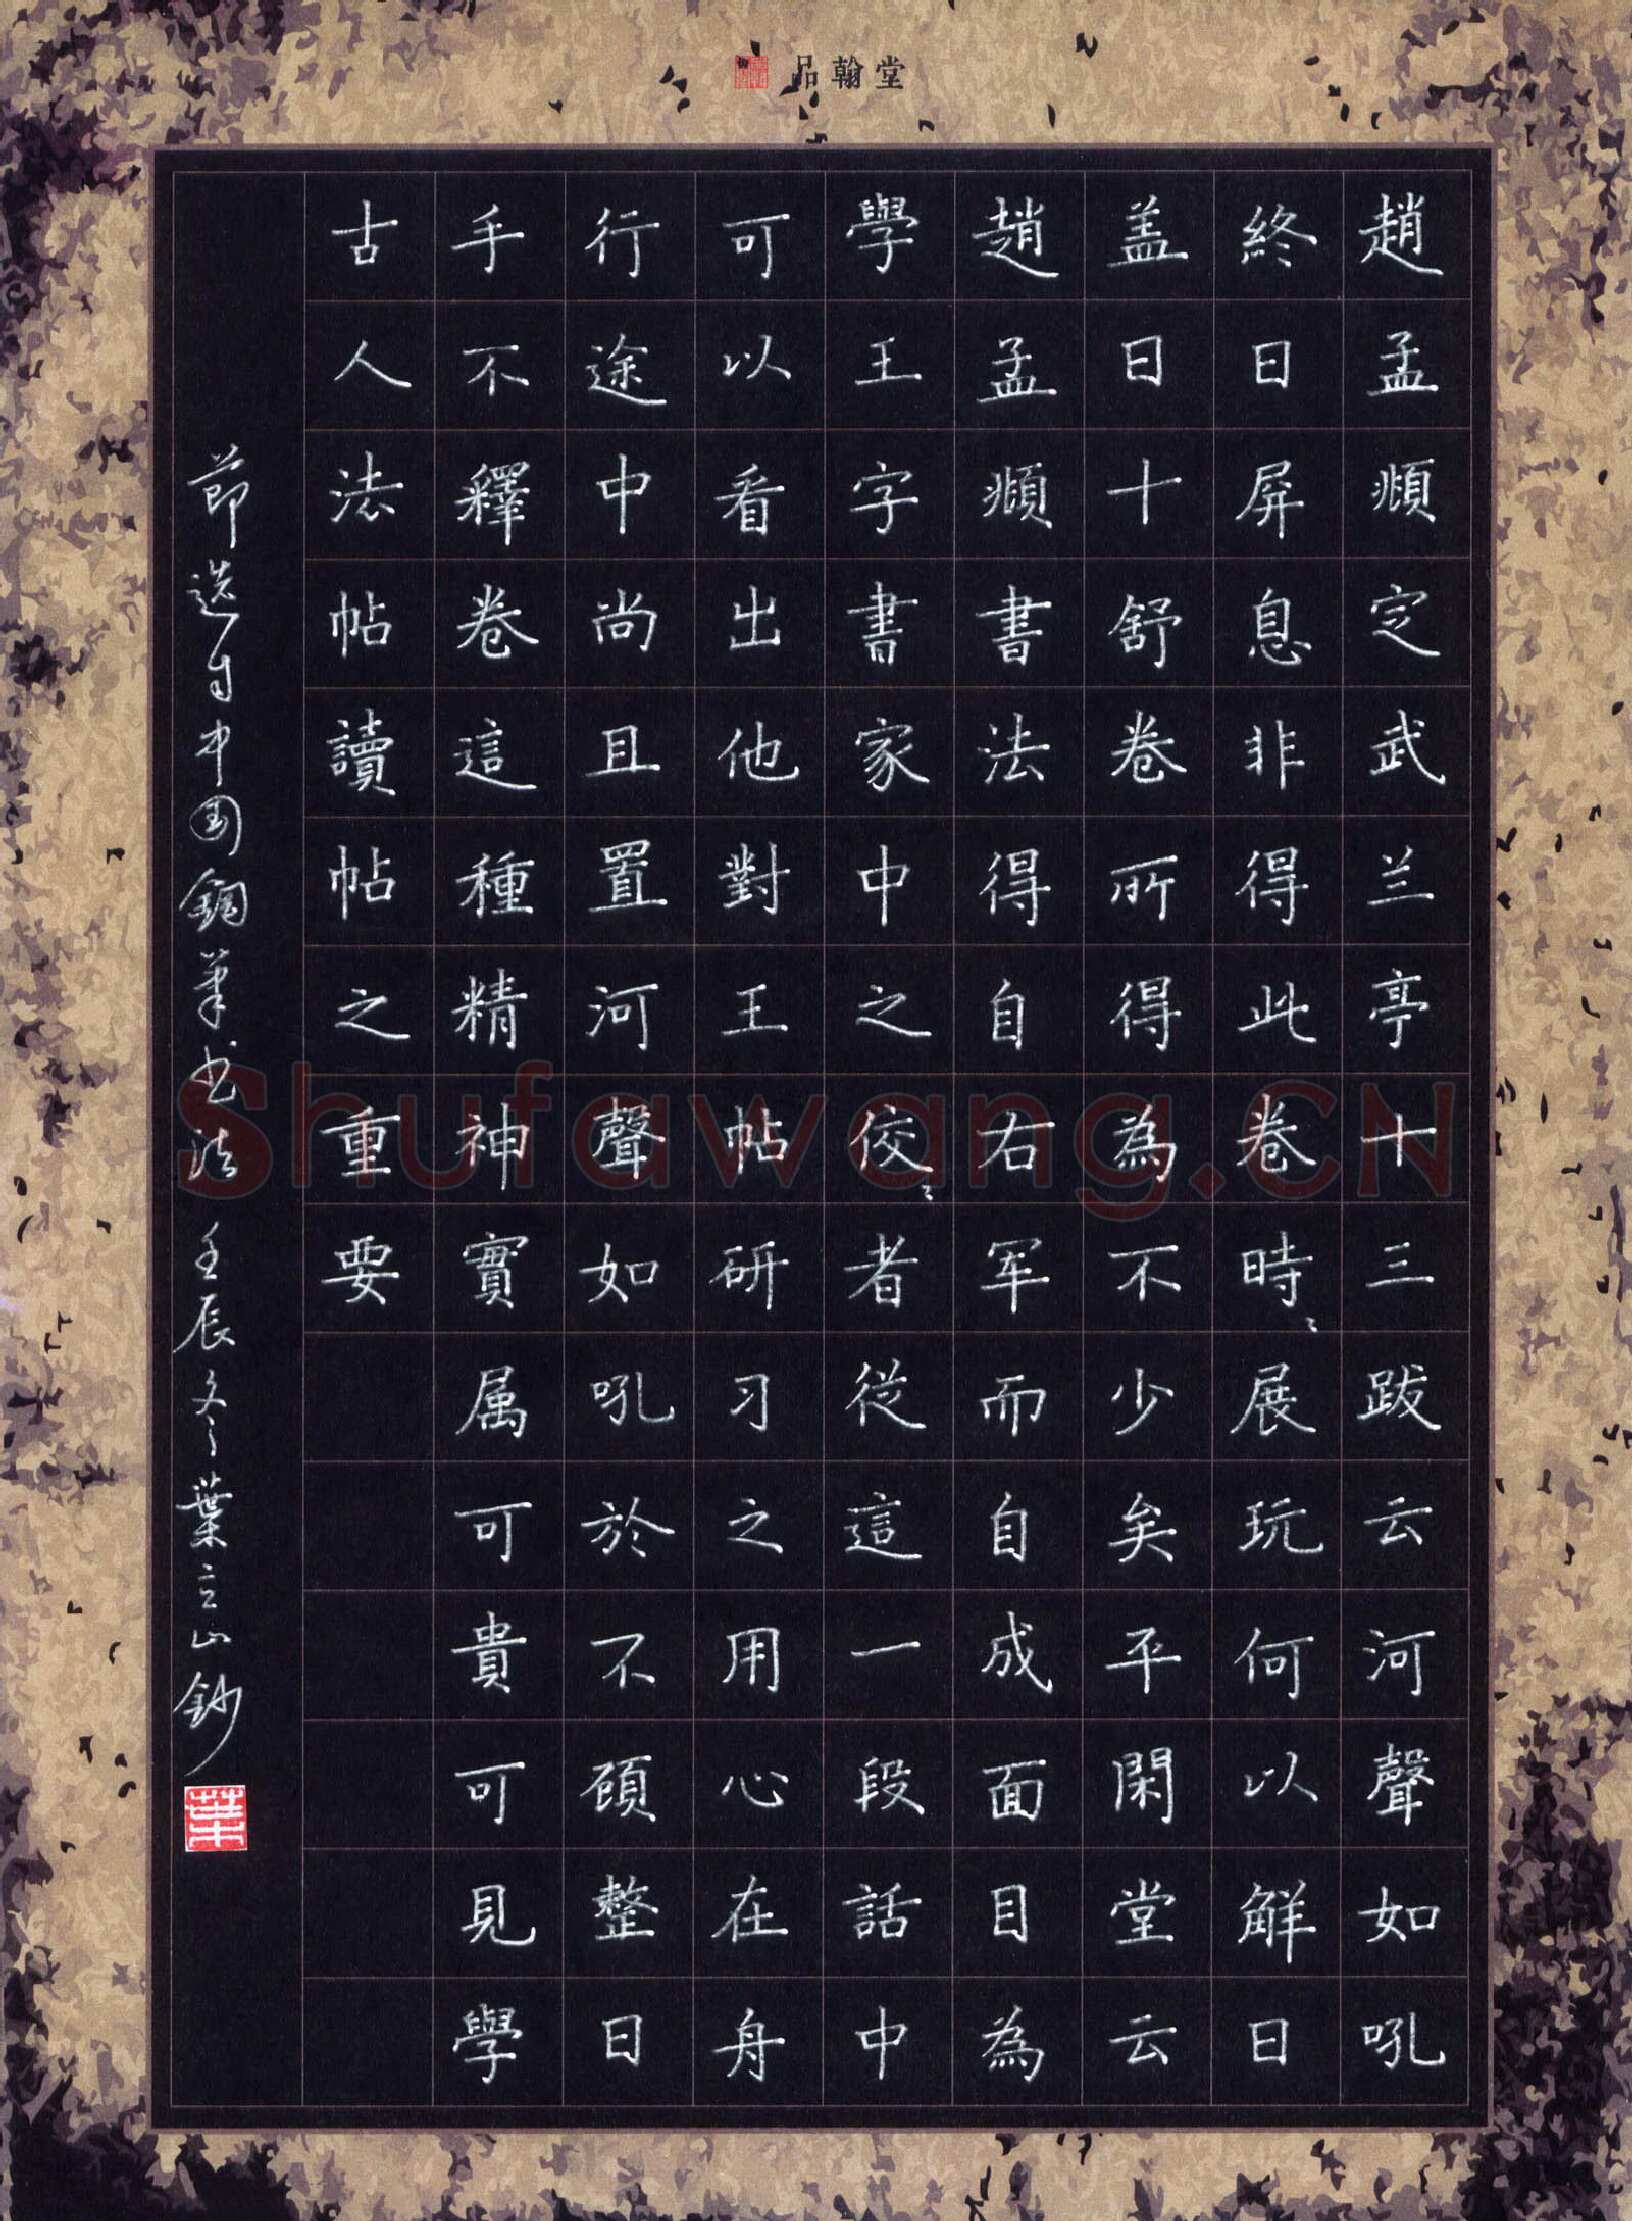 品翰堂
趙孟頫定武兰亭十三跋云河聲如吼
終日屏息非得此卷時〻展玩何以解日
盖日十舒卷所得為不少矣平閑堂云
趙孟頫書法得自右军而自成面目為
學王字書家中之佼〻者從這一段話中
可以看出他對王帖研习之用心在舟
行途中尚且置河聲如吼於不顧整日
手不釋卷這種精神實属可貴可見學
古人法帖讀帖之重要
节选自中国鋼筆书法 壬辰冬 葉立山鈔
葉
Shufawang.CN